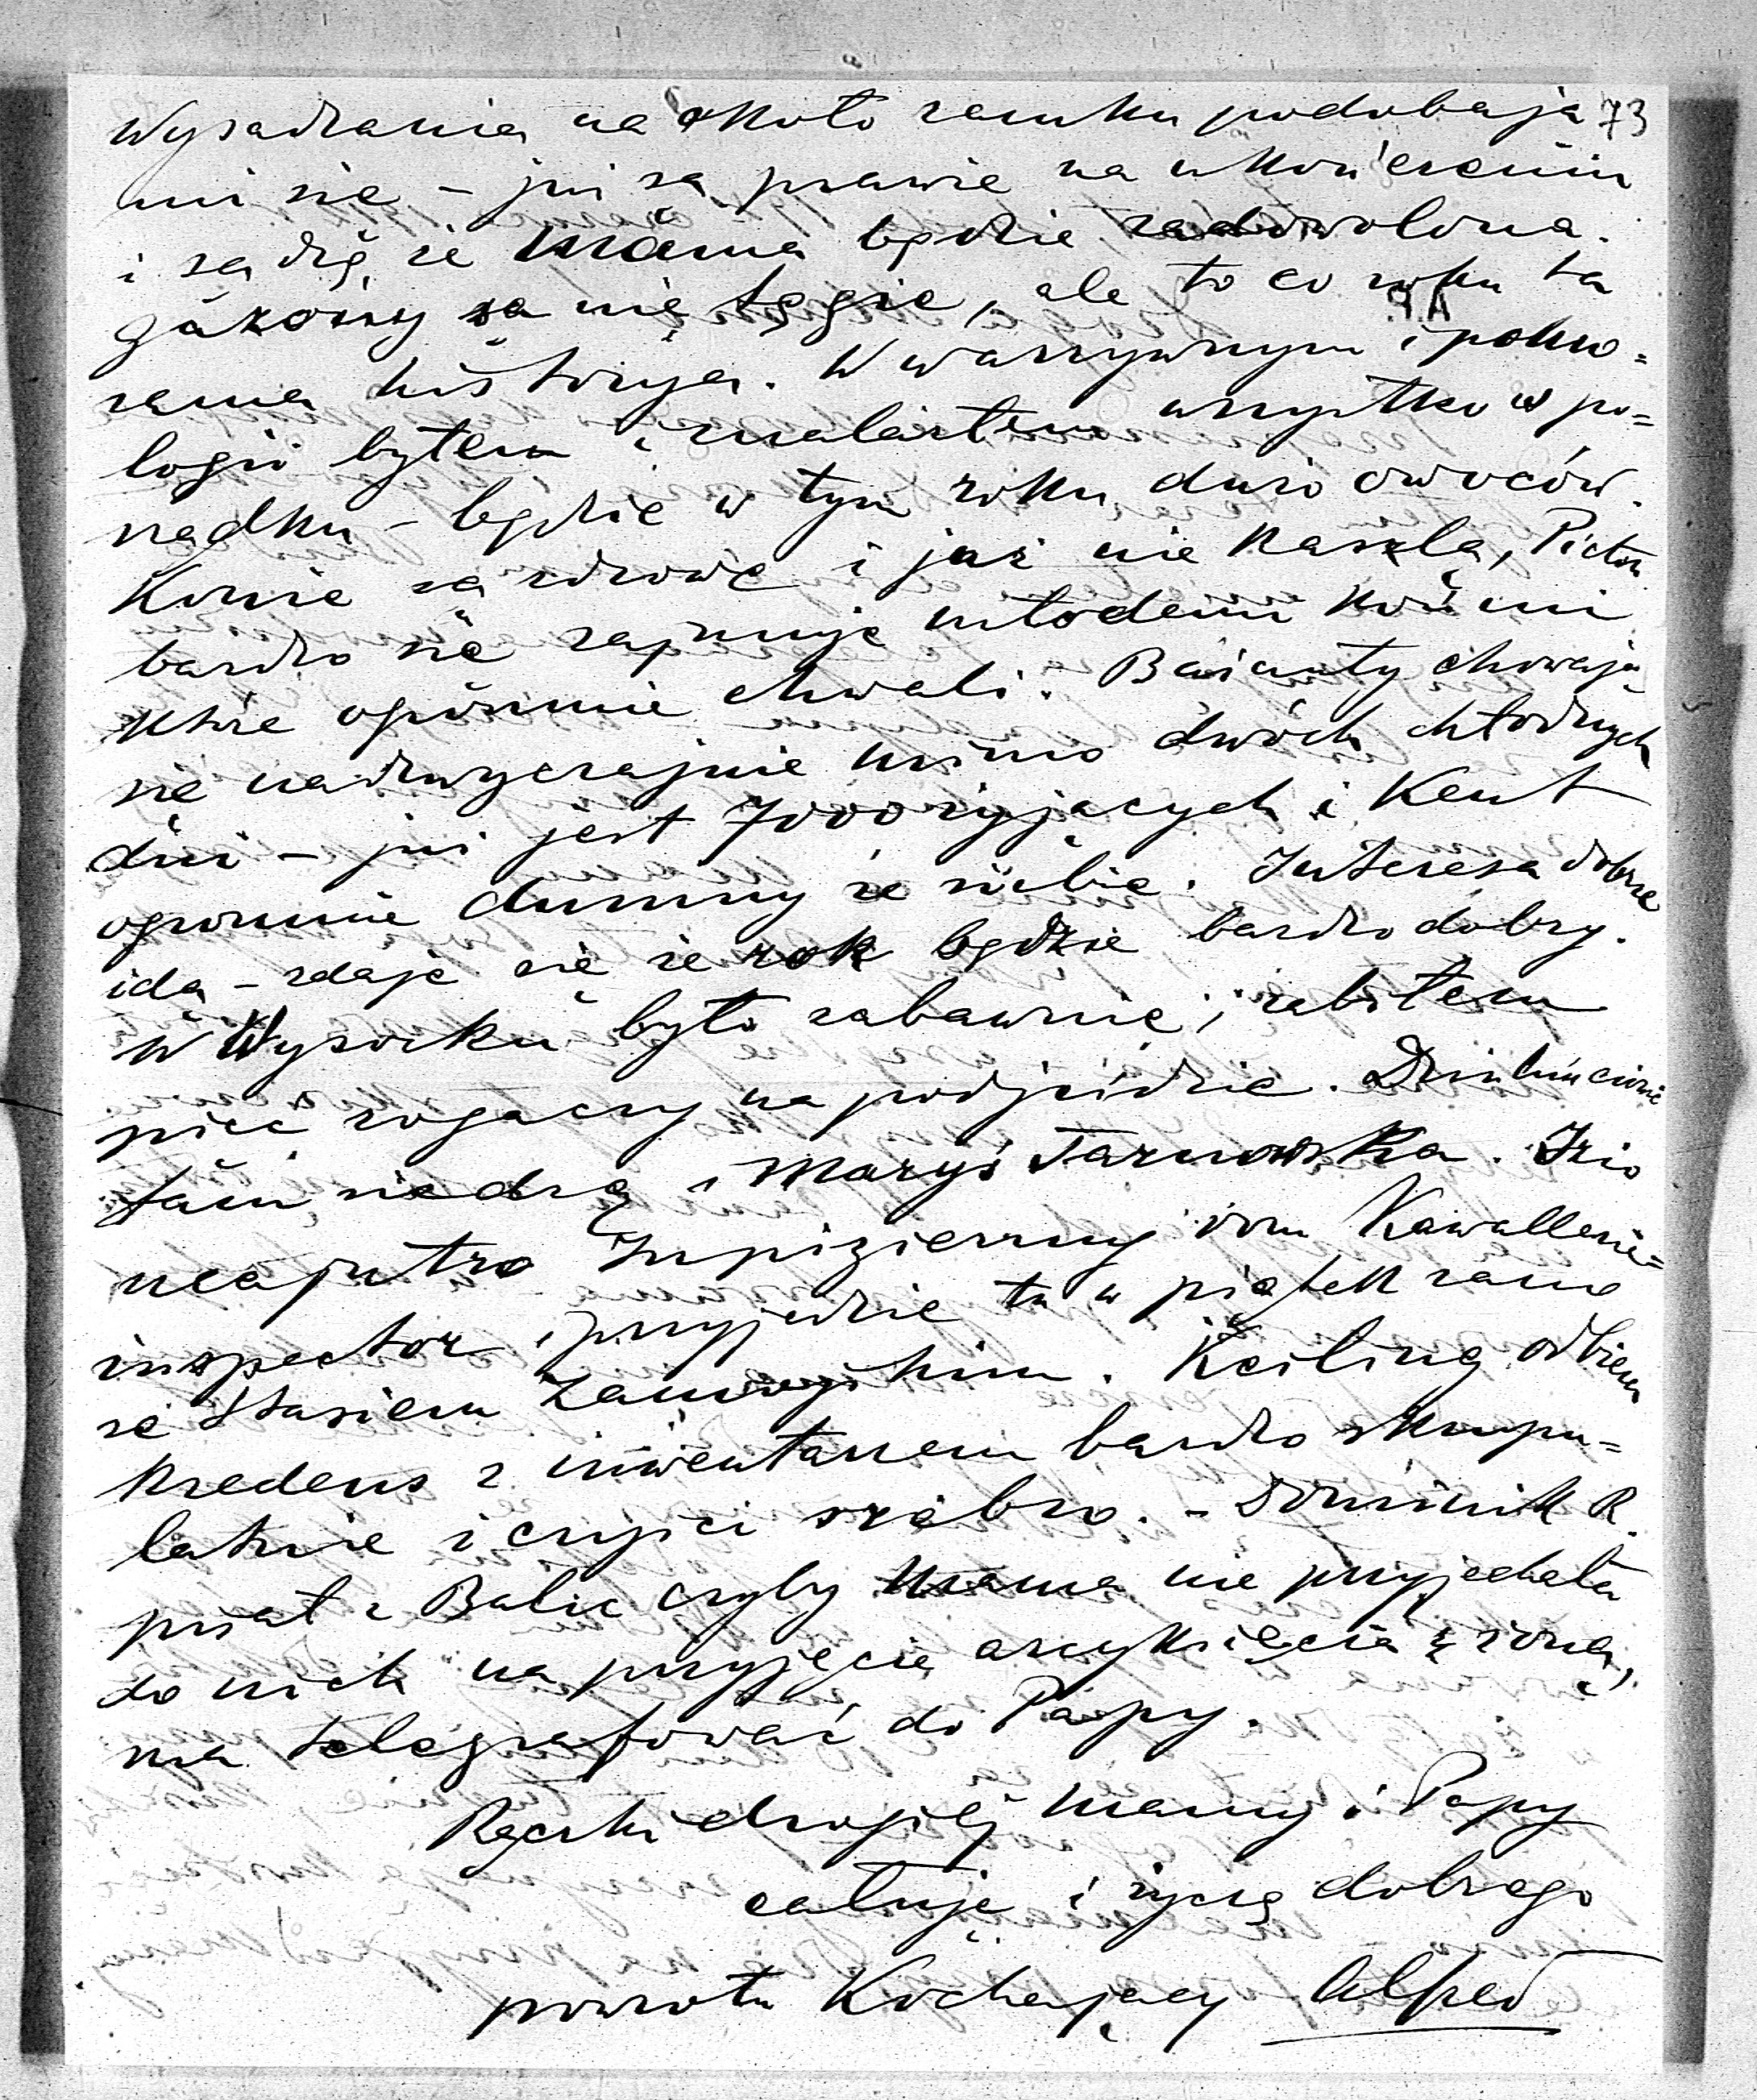 Wysadzania na około zamku podobają 73
mi się – już są prawie na ukończeniu
i sądzę że Mama będzie zadowolona.
Gazony są nie tęgie, ale to co roku ta
sama historya. W warzywnym i pomo=
logii byłem i znalazłem wszystko w po=
rządku – będzie w tym roku dużo owoców.
Konie są zdrowe i już nie kaszlą, Pictor
bardzo się zajmuje młodemi końmi
które ogromnie chwali. Bażanty chowają
się nadzwyczajnie mimo dwóch chłodnych
dni – już jest 7000 żyjących i Kent
ogromnie dumny ze siebie. Interesa dobrze
idą – zdaje się że rok będzie bardzo dobry.
W Wysocku było zabawnie, zabiłem
pięć rogaczy na podjeździe.
tam siedzą i Maryś Tarnowska. Izio
ma jutro Inspizierung vom Kawallerie=
inspector i przyjedzie tu w piątek rano
ze Stasiem Zamoyskim. Keiling odbiera
kredens z inwentarzem bardzo skrupu=
latnie i czyści srebro. – Dominik R.
pisał z Balic czyby Mama nie przyjechała
do nich na przyjęcie arcyksięcia z żoną,
ma telegrafować do Papy.
Rączki drogiej Mamy i Papy
całuję i życzę dobrego
powrotu Kochający Alfred